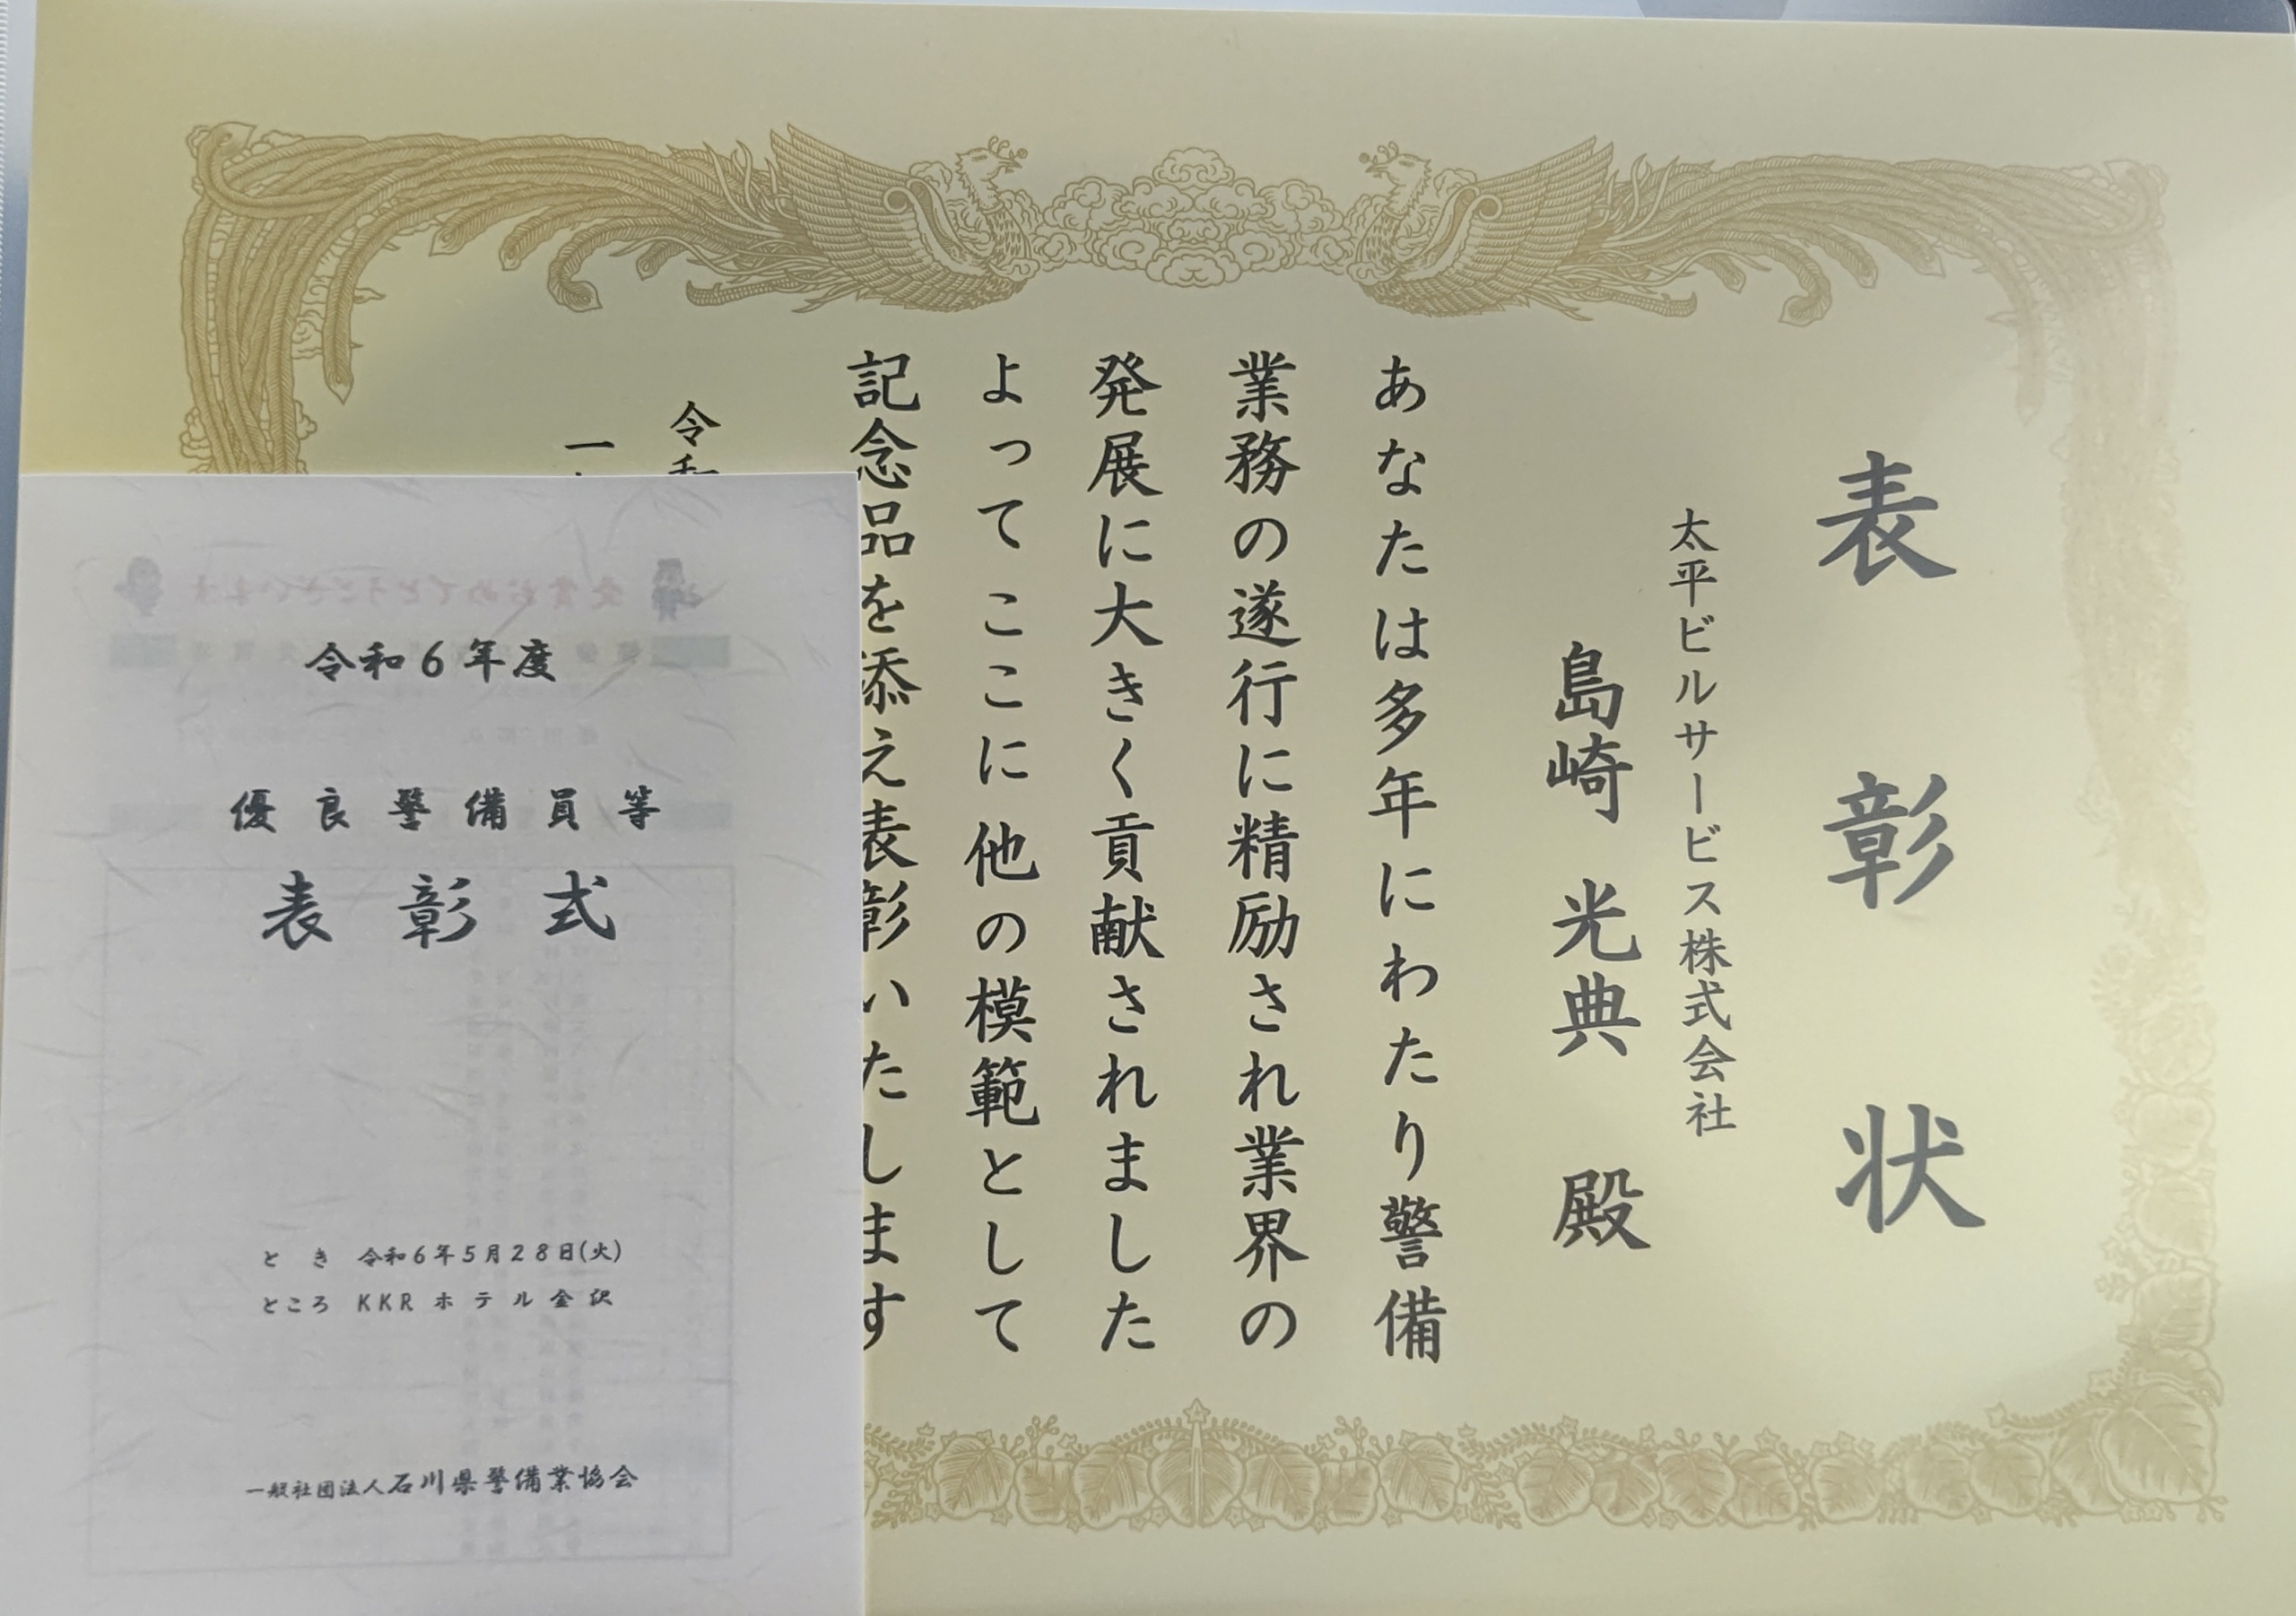 表彰状
太平ビルサービス株式会社
島崎 光典 殿
あなたは多年にわたり警備
業務の遂行に精励され業界の
発展に大きく貢献されました
よってここに他の模範として
記念品を添え表彰いたします
令和
一
令和6年度
優良警備員等
表彰式
とき 令和6年5月28日(火)
ところ KKRホテル金沢
一般社団法人石川県警備業協会